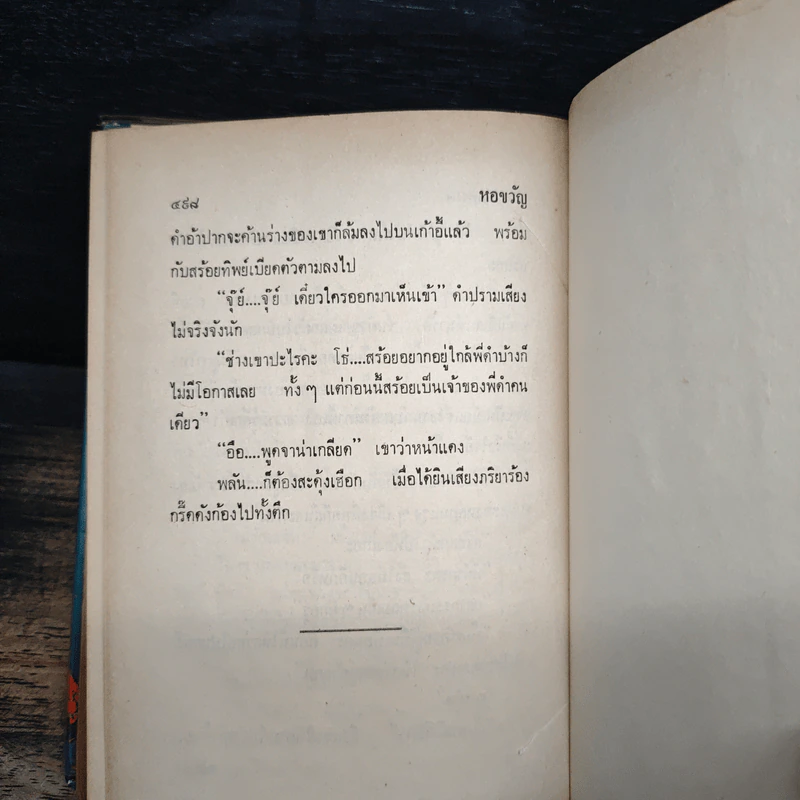 ๕๙๘ หอขวัญ
ดำอ้าปากจะค้านร่างของเขาก็ล้มลงไปบนเก้าอี้แล้ว พร้อม
กับสร้อยทิพย์เบียดตัวตามลงไป
“จุ๊ย์....จุ๊ย์ เดี๋ยวใครออกมาเห็นเข้า” ดำปรามเสียง
ไม่จริงจังนัก
“ช่างเขาปะไรคะ โธ่....สร้อยอยากอยู่ใกล้พี่ดำบ้างก็
ไม่มีโอกาสเลย ทั้ง ๆ แต่ก่อนนี้สร้อยเป็นเจ้าของพี่ดำคน
เดียว”
“อือ....พูดจาน่าเกลียด” เขาว่าหน้าแดง
พลัน....ก็ต้องสะดุ้งเฮือก เมื่อได้ยินเสียงภริยาร้อง
กรี๊ดดังก้องไปทั้งตึก